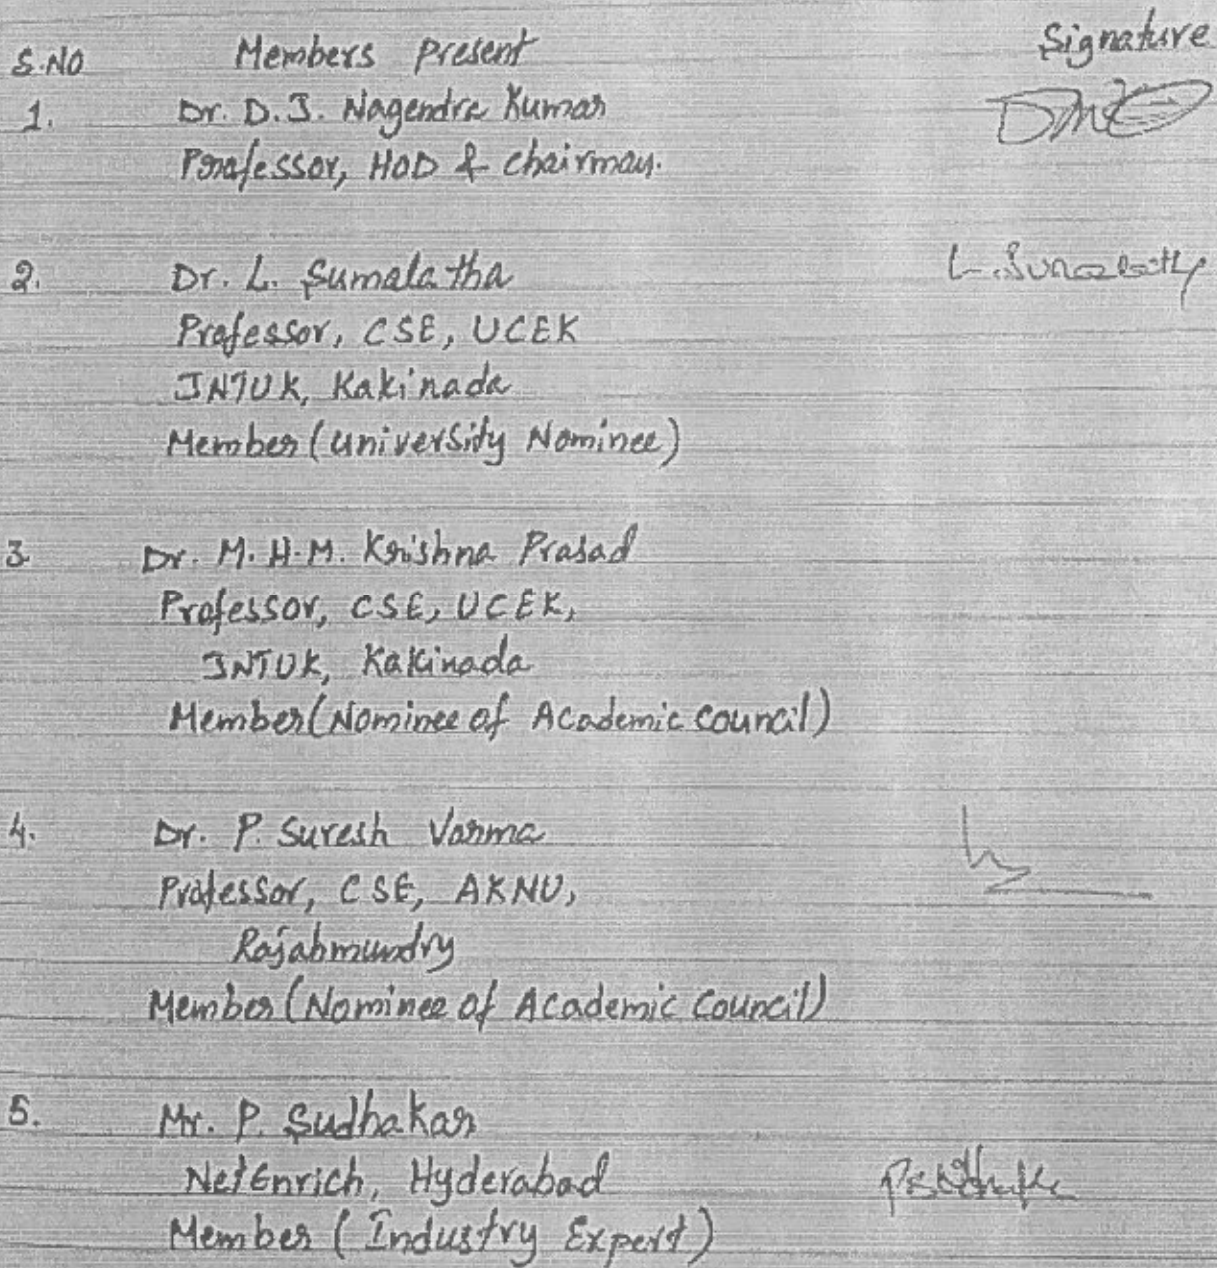 S.NO Members present Signature
1. Dr. D.J. Nagendra Kumar
Professor, HOD & chairman.
2. Dr. L. Sumalatha L. Sumalatha
Professor, CSE, UCEK
JNTUK, Kakinada
Member (University Nominee)
3 Dr. M.H.M. Krishna Prasad
Professor, CSE, UCEK,
JNTUK, Kakinada
Member (Nominee of Academic council)
4. Dr. P. Suresh Varma
Professor, CSE, AKNU,
Rajahmundry
Member (Nominee of Academic Council)
5. Mr. P. Sudhakar
NetEnrich, Hyderabad
Member (Industry Expert)